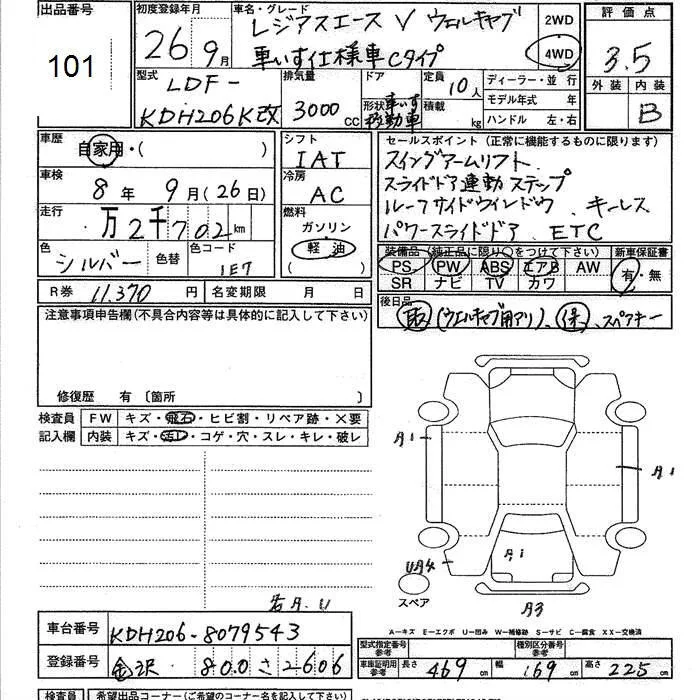 出品番号
101
初度登録年月
26年 9月
車名・グレード
レジアスエース V ウェルキャブ
車いす仕様車Cタイプ
2WD
4WD
評価点
3.5
外装 内装
B
型式
LDF-
KDH206K改
排気量
3000 CC
ドア
形状 車いす移動車
定員 10人
積載 kg
ディーラー・並行
モデル年式 年
ハンドル 左・右
車歴
自家用・( )
車検
8年 9月(26日)
走行
万2千702km
色
シルバー
色替
色コード
1E7
シフト
IAT
冷房
AC
燃料
ガソリン
軽油
( )
セールスポイント(正常に機能するものに限ります)
スイングアームリフト
スライドドア連動ステップ
ルーフサイドウインドウ、キーレス
パワースライドドア、ETC
装備品(純正品に限り○をつけて下さい)
PS PW ABS エアB AW
SR ナビ TV カワ
新車保証書
有・無
R券 11,370円
名変期限 月 日
後日品
取(ウェルキャブ用アリ)、保、スペアキー
注意事項申告欄(不具合内容等は具体的に記入して下さい)
修復歴 有〔箇所 〕
検査員
記入欄
FW キズ・飛石・ヒビ割・リペア跡・×要
内装 キズ・汚レ・コゲ・穴・スレ・キレ・破レ
A1
A1
A1
UA4
スペア
A3
若A.U
A-キズ E-エクボ U-凹み W-補修跡 S-サビ C-腐食 XX-交換済
車台番号 KDH206-8079543
登録番号 金沢 800 さ 2606
型式指定番号
参考
種別区分番号
参考
車庫証明用
参考
長さ 469cm 幅 169cm 高さ 225cm
検査員 希望出品コーナー(ご希望のコーナー名を記入して下さい)